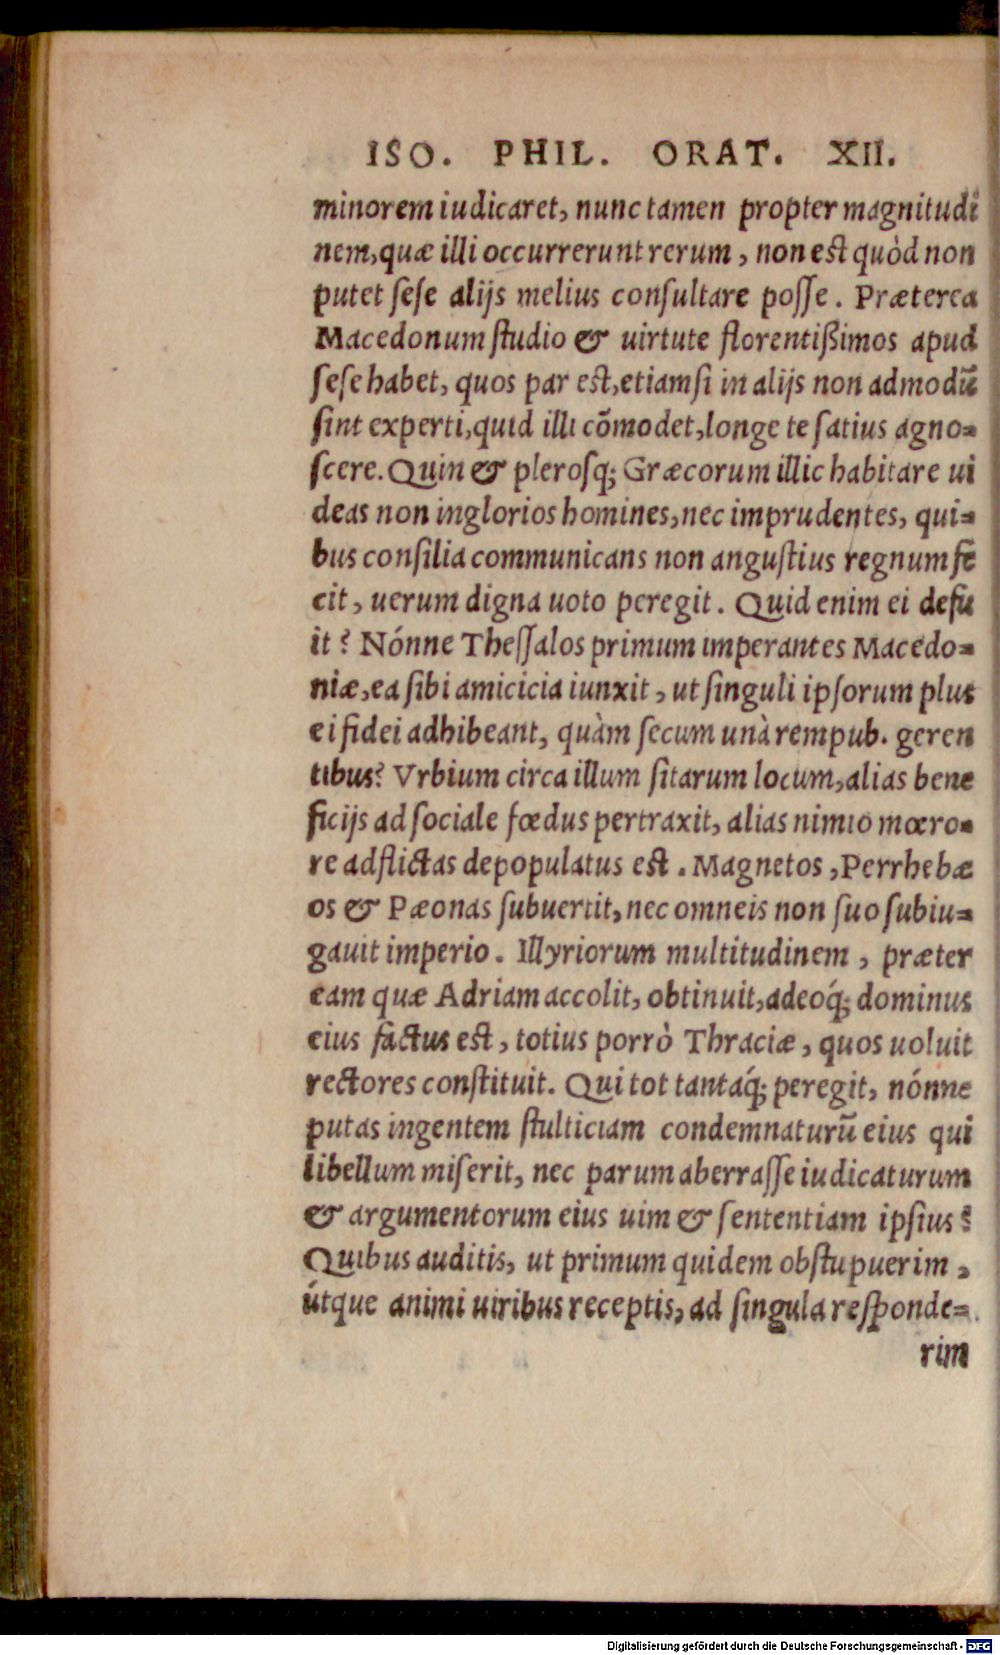 ISO. PHIL. ORAT. XII.
minorem iudicaret, nunc tamen propter magnitudi
nem, quæ illi occurrerunt rerum, non est quòd non
putet ſeſe alijs melius conſultare poſſe. Præterea
Macedonum ſtudio & uirtute florentißimos apud
ſeſe habet, quos par est, etiamſi in alijs non admodũ
ſint experti, quid illi cõmodet, longe te ſatius agno-
ſcere. Quin & pleroſq; Græcorum illic habitare ui
deas non inglorios homines, nec imprudentes, qui-
bus conſilia communicans non anguſtius regnum fe
cit, uerum digna uoto peregit. Quid enim ei defu
it? Nónne Theſſalos primum imperantes Macedo-
niæ, ea ſibi amicicia iunxit, ut ſinguli ipſorum plus
ei fidei adhibeant, quàm ſecum unà rempub. geren
tibus? Vrbium circa illum ſitarum locum, alias bene
ficijs ad ſociale fœdus pertraxit, alias nimio mœro-
re adflictas depopulatus est. Magnetos, Perrhebæ
os & Pæonas ſubuertit, nec omneis non ſuo ſubiu-
gauit imperio. Illyriorum multitudinem, præter
eam quæ Adriam accolit, obtinuit, adeoq́; dominus
eius factus est, totius porrò Thraciæ, quos uoluit
rectores conſtituit. Qui tot tantaq́; peregit, nónne
putas ingentem ſtulticiam condemnaturũ eius qui
libellum miſerit, nec parum aberraſſe iudicaturum
& argumentorum eius uim & ſententiam ipſius?
Quibus auditis, ut primum quidem obſtupuerim,
útque animi uiribus receptis, ad ſingula reſponde-
rim
Digitalisierung gefördert durch die Deutsche Forschungsgemeinschaft - DFG